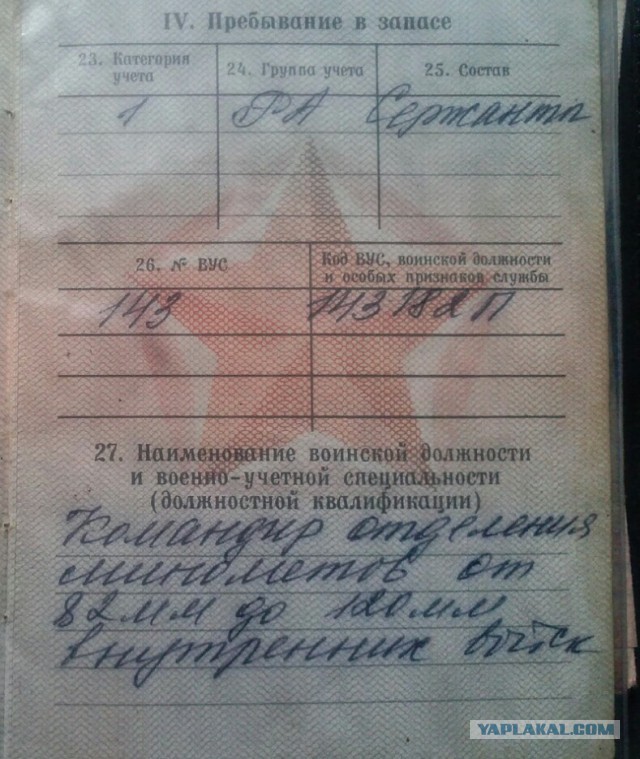 IV. Пребывание в запасе
23. Категория учета
24. Группа учета
25. Состав
1 РА Сержанты
26. № ВУС
Код ВУС, воинской должности
и особых признаков службы
143 143 182 П
27. Наименование воинской должности
и военно-учетной специальности
(должностной квалификации)
Командир отделения
минометов от
82мм до 120мм
внутренних войск
YAPLAKAL.COM